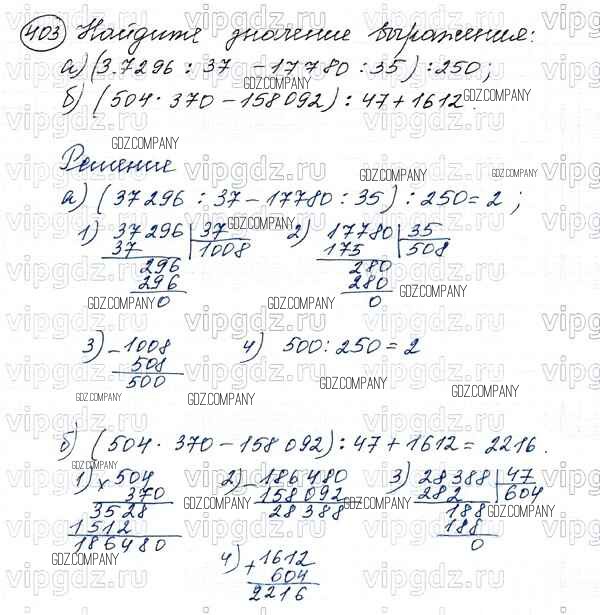 403 Найдите значение выражения:
а) (3.7296 : 37 - 17780 : 35) : 250;
б) (504 · 370 - 158 092) : 47 + 1612.
Решение
а) (37 296 : 37 - 17780 : 35) : 250 = 2 ;
1) 37296 | 37
37 | 1008
296
296
0
2) 17780 | 35
175 | 508
280
280
0
3) - 1008
508
500
4) 500 : 250 = 2
б) (504 · 370 - 158 092) : 47 + 1612 = 2216.
1) × 504
370
3528
1512
186480
2) - 186480
158092
28388
3) 28388 | 47
282 | 604
188
188
0
4) + 1612
604
2216
vipgdz.ru
GDZ.COMPANY